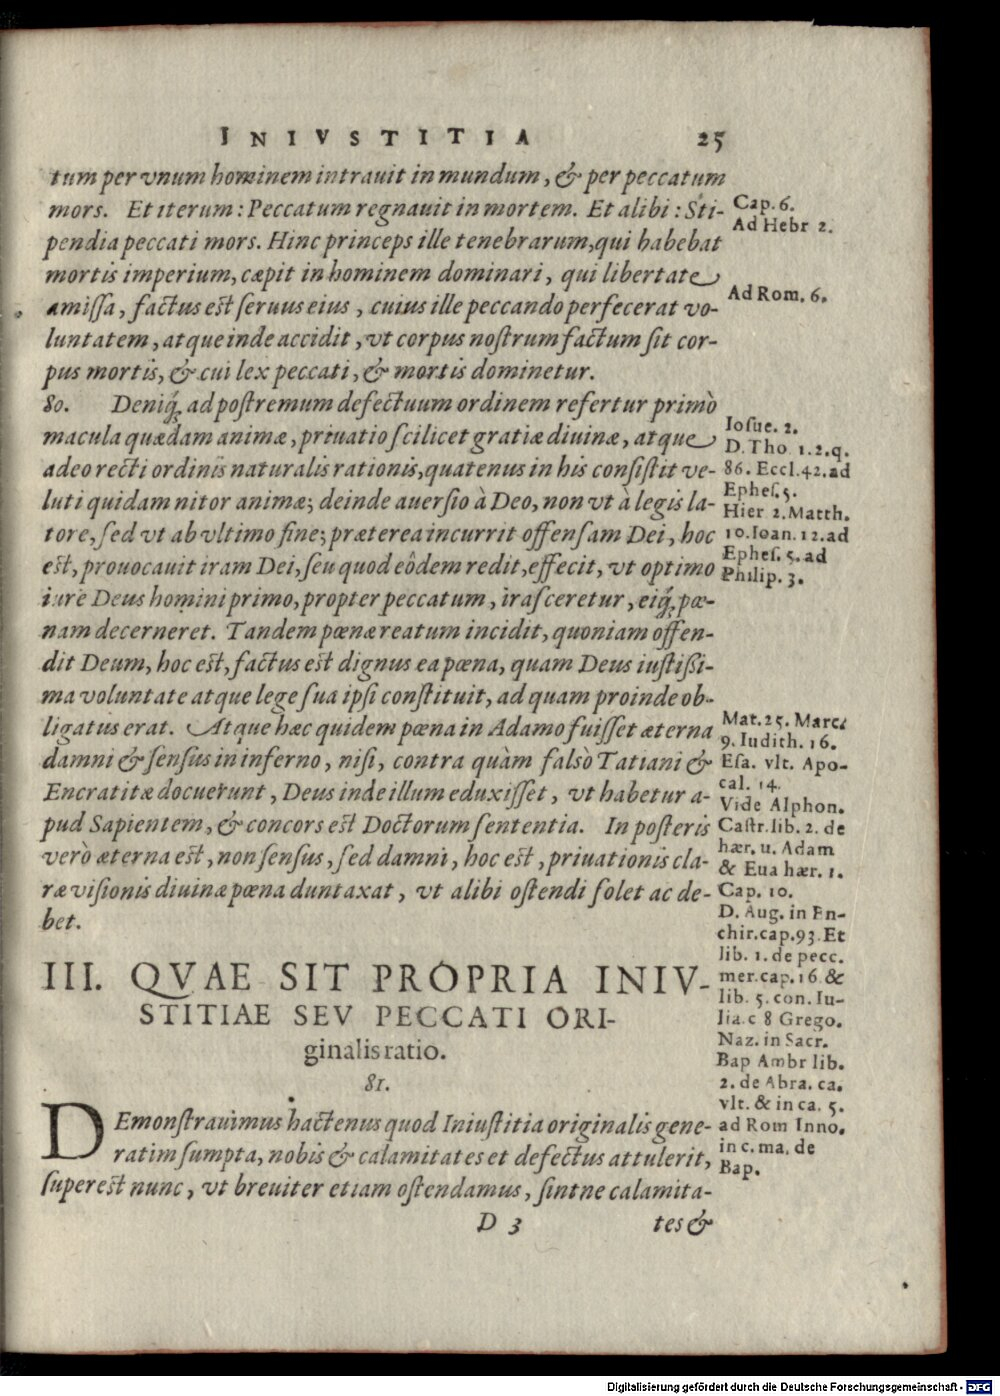 INIVSTITIA 25
tum per vnum hominem intrauit in mundum, & per peccatum
mors. Et iterum: Peccatum regnauit in mortem. Et alibi: Sti-
pendia peccati mors. Hinc princeps ille tenebrarum, qui habebat
mortis imperium, cæpit in hominem dominari, qui libertate
amissa, factus est seruus eius, cuius ille peccando perfecerat vo-
luntatem, atque inde accidit, vt corpus nostrum factum sit cor-
pus mortis, & cui lex peccati, & mortis dominetur.
80. Deniq́; ad postremum defectuum ordinem refertur primò
macula quædam animæ, priuatio scilicet gratiæ diuinæ, atque
adeo recti ordinis naturalis rationis, quatenus in his consistit ve-
luti quidam nitor animæ; deinde auersio à Deo, non vt à legis la-
tore, sed vt ab vltimo fine; præterea incurrit offensam Dei, hoc
est, prouocauit iram Dei, seu quod eôdem redit, effecit, vt optimo
iure Deus homini primo, propter peccatum, irasceretur, eiq́; pœ-
nam decerneret. Tandem pœnæ reatum incidit, quoniam offen-
dit Deum, hoc est, factus est dignus ea pœna, quam Deus iustißi-
ma voluntate atque lege sua ipsi constituit, ad quam proinde ob-
ligatus erat. Atque hæc quidem pœna in Adamo fuisset æterna
damni & sensus in inferno, nisi, contra quàm falsò Tatiani &
Encratitæ docuerunt, Deus inde illum eduxisset, vt habetur a-
pud Sapientem, & concors est Doctorum sententia. In posteris
verò æterna est, non sensus, sed damni, hoc est, priuationis cla-
ræ visionis diuinæ pœna duntaxat, vt alibi ostendi solet ac de-
bet.
Cap. 6.
Ad Hebr 2.
Ad Rom. 6.
Iosue. 2.
D. Tho 1. 2. q.
86. Eccl. 42. ad
Ephes. 5.
Hier 2. Matth.
10. Ioan. 12. ad
Ephes. 5. ad
Philip. 3.
Mat. 25. Marc.
9. Iudith. 16.
Esa. vlt. Apo-
cal. 14.
Vide Alphon.
Castr. lib. 2. de
hær. u. Adam
& Eua hær. 1.
Cap. 10.
D. Aug. in En-
chir. cap. 93. Et
lib. 1. de pecc.
mer. cap. 16 &
lib. 5. con. Iu-
lia. c 8 Grego.
Naz. in Sacr.
Bap Ambr lib.
2. de Abra. ca.
vlt. & in ca. 5.
ad Rom Inno.
in c. ma. de
Bap.
III. QVAE SIT PROPRIA INIV-
STITIAE SEV PECCATI ORI-
ginalis ratio.
81.
DEmonstrauimus hactenus quod Iniustitia originalis gene-
ratim sumpta, nobis & calamitates et defectus attulerit,
superest nunc, vt breuiter etiam ostendamus, sintne calamita-
D 3 tes &
Digitalisierung gefördert durch die Deutsche Forschungsgemeinschaft - DFG